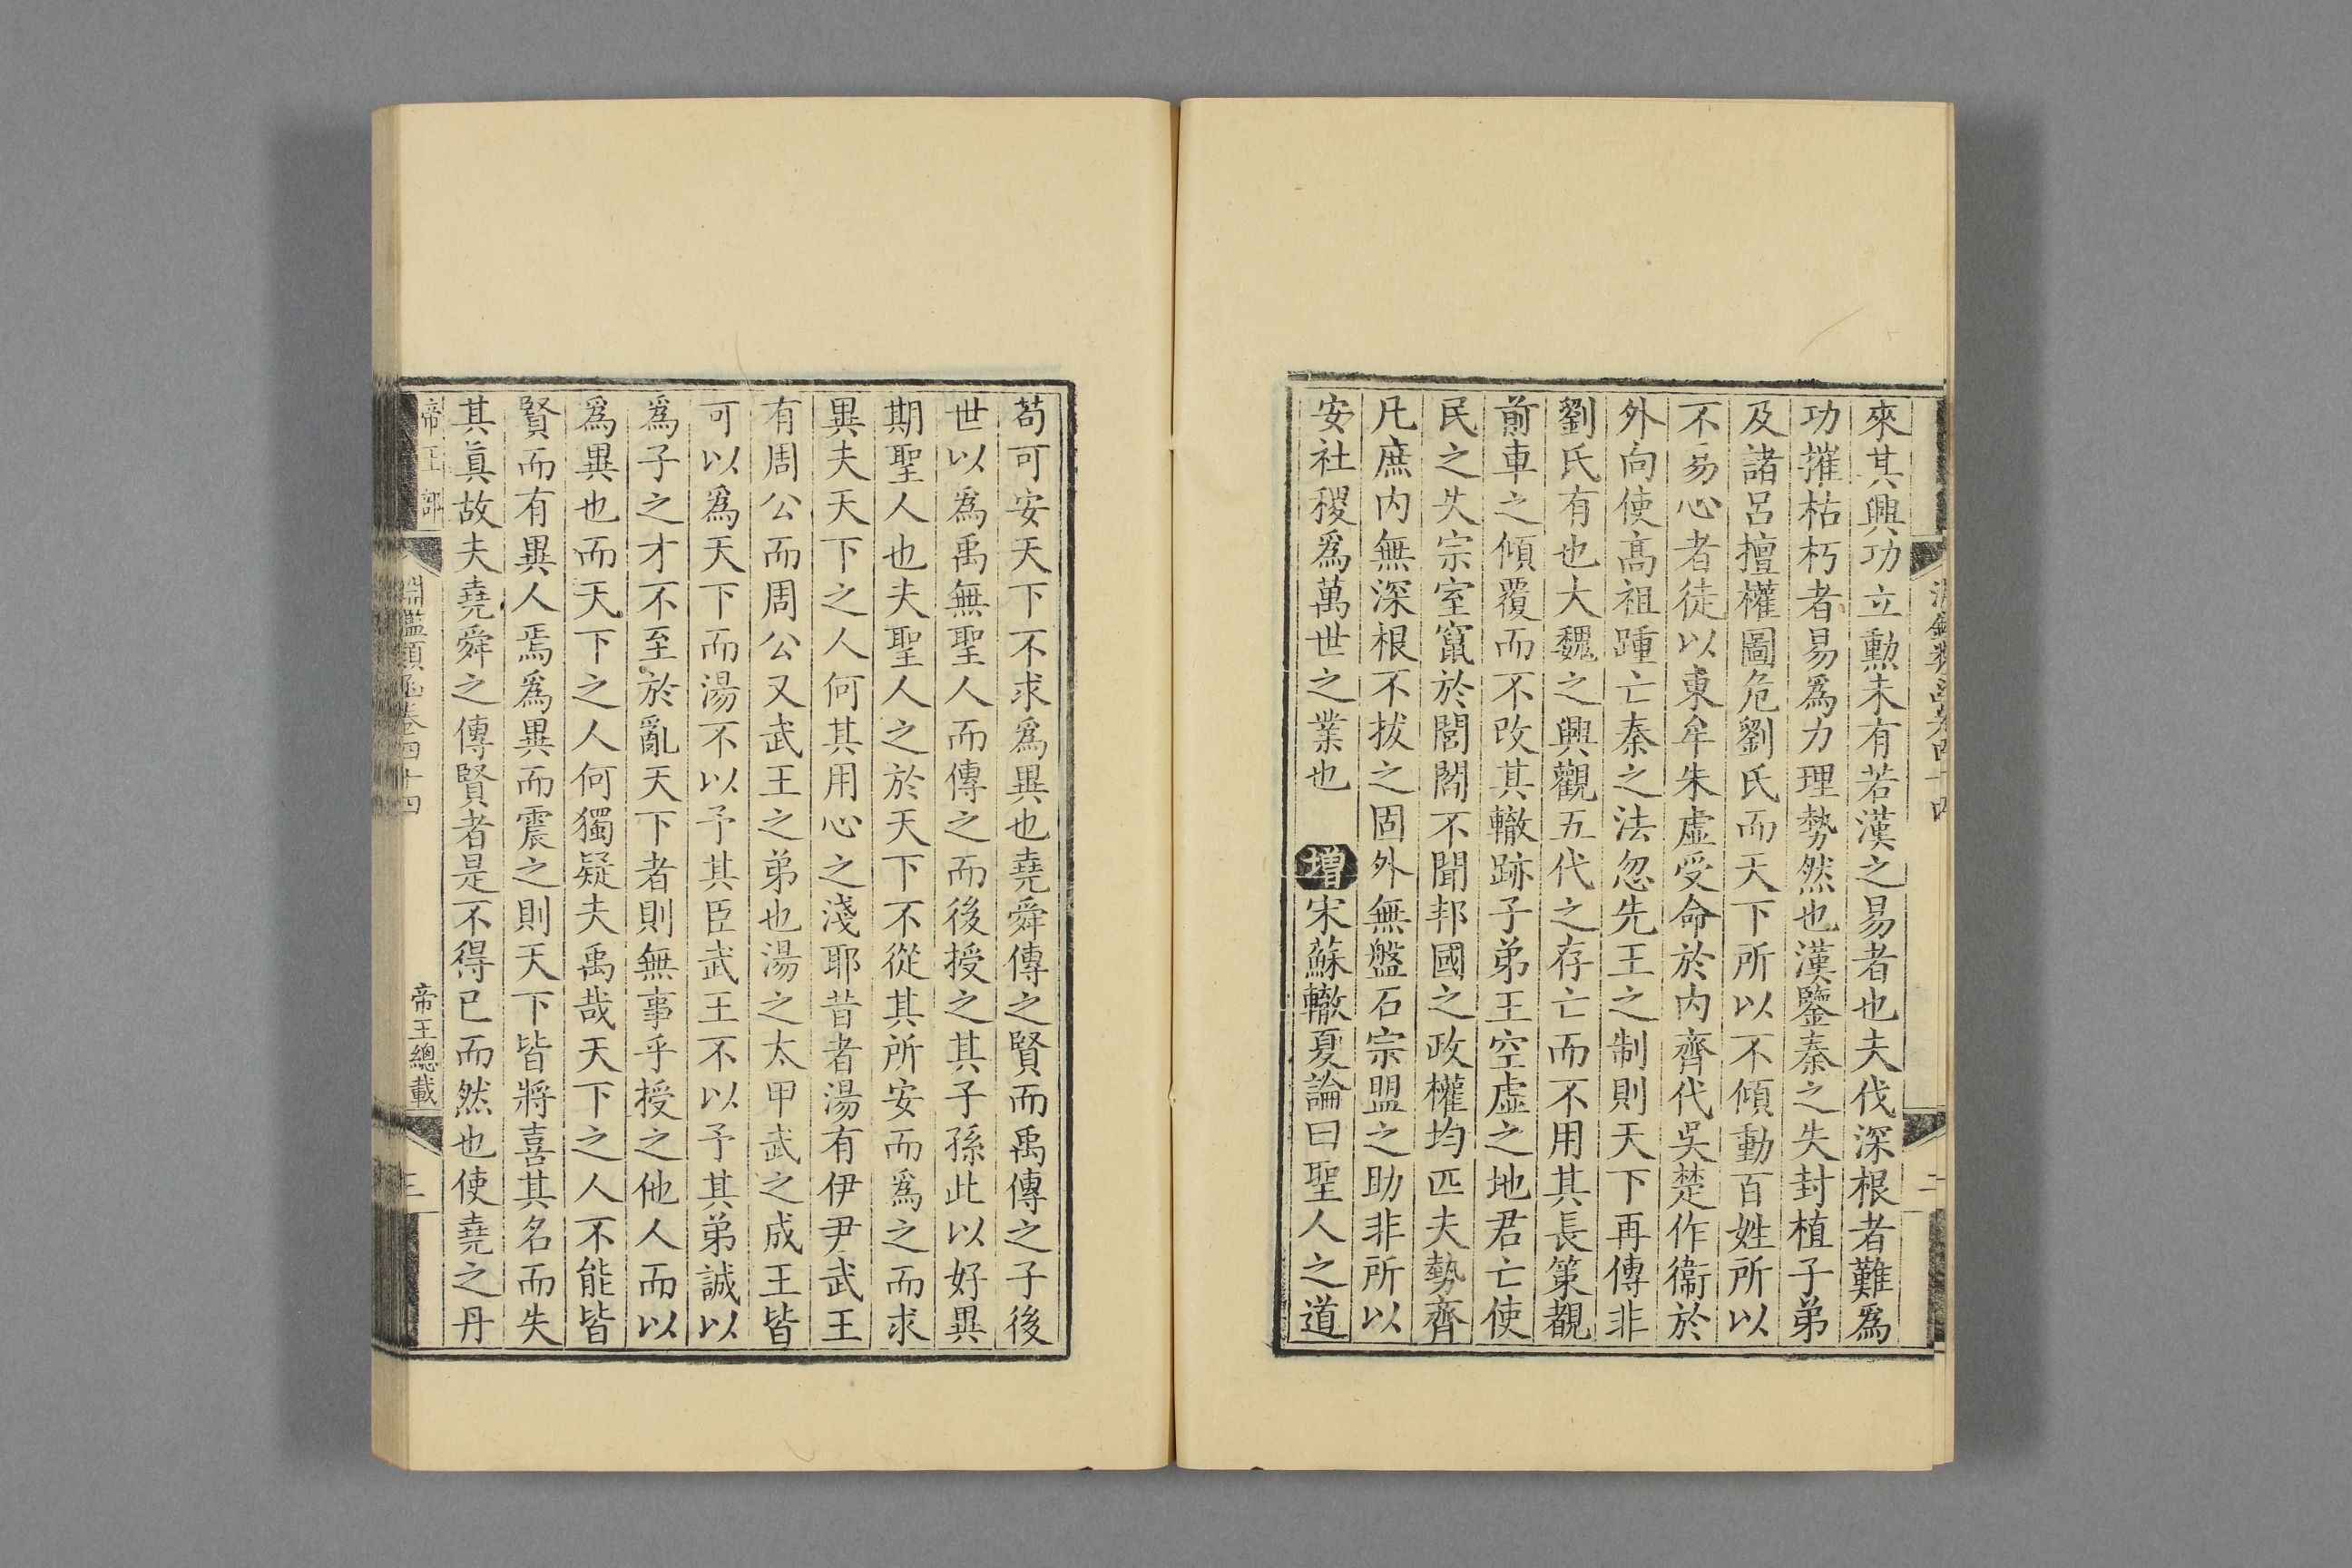 淵鑑類函卷四十四
二
來其興功立勲未有若漢之易者也夫伐深根者難爲
功摧枯朽者易爲力理勢然也漢鑒秦之失封植子弟
及諸呂擅權圖危劉氏而天下所以不傾動百姓所以
不易心者徒以東牟朱虛受命於内齊代吳楚作衞於
外向使高祖踵亡秦之法忽先王之制則天下再傳非
劉氏有也大魏之興觀五代之存亡而不用其長策覩
前車之傾覆而不改其轍跡子弟王空虛之地君亡使
民之失宗室竄於閭閻不聞邦國之政權均匹夫勢齊
凡庶内無深根不拔之固外無盤石宗盟之助非所以
安社稷爲萬世之業也 增宋蘇轍夏論曰聖人之道
苟可安天下不求爲異也堯舜傳之賢而禹傳之子後
世以爲禹無聖人而傳之而後授之其子孫此以好異
期聖人也夫聖人之於天下不從其所安而爲之而求
異夫天下之人何其用心之淺耶昔者湯有伊尹武王
有周公而周公又武王之弟也湯之太甲武之成王皆
可以爲天下而湯不以予其臣武王不以予其弟誠以
爲子之才不至於亂天下者則無事乎授之他人而以
爲異也而天下之人何獨疑夫禹哉天下之人不能皆
賢而有異人焉爲異而震之則天下皆將喜其名而失
其眞故夫堯舜之傳賢者是不得已而然也使堯之丹
帝王部
淵鑑類函卷四十四
帝王總載
三